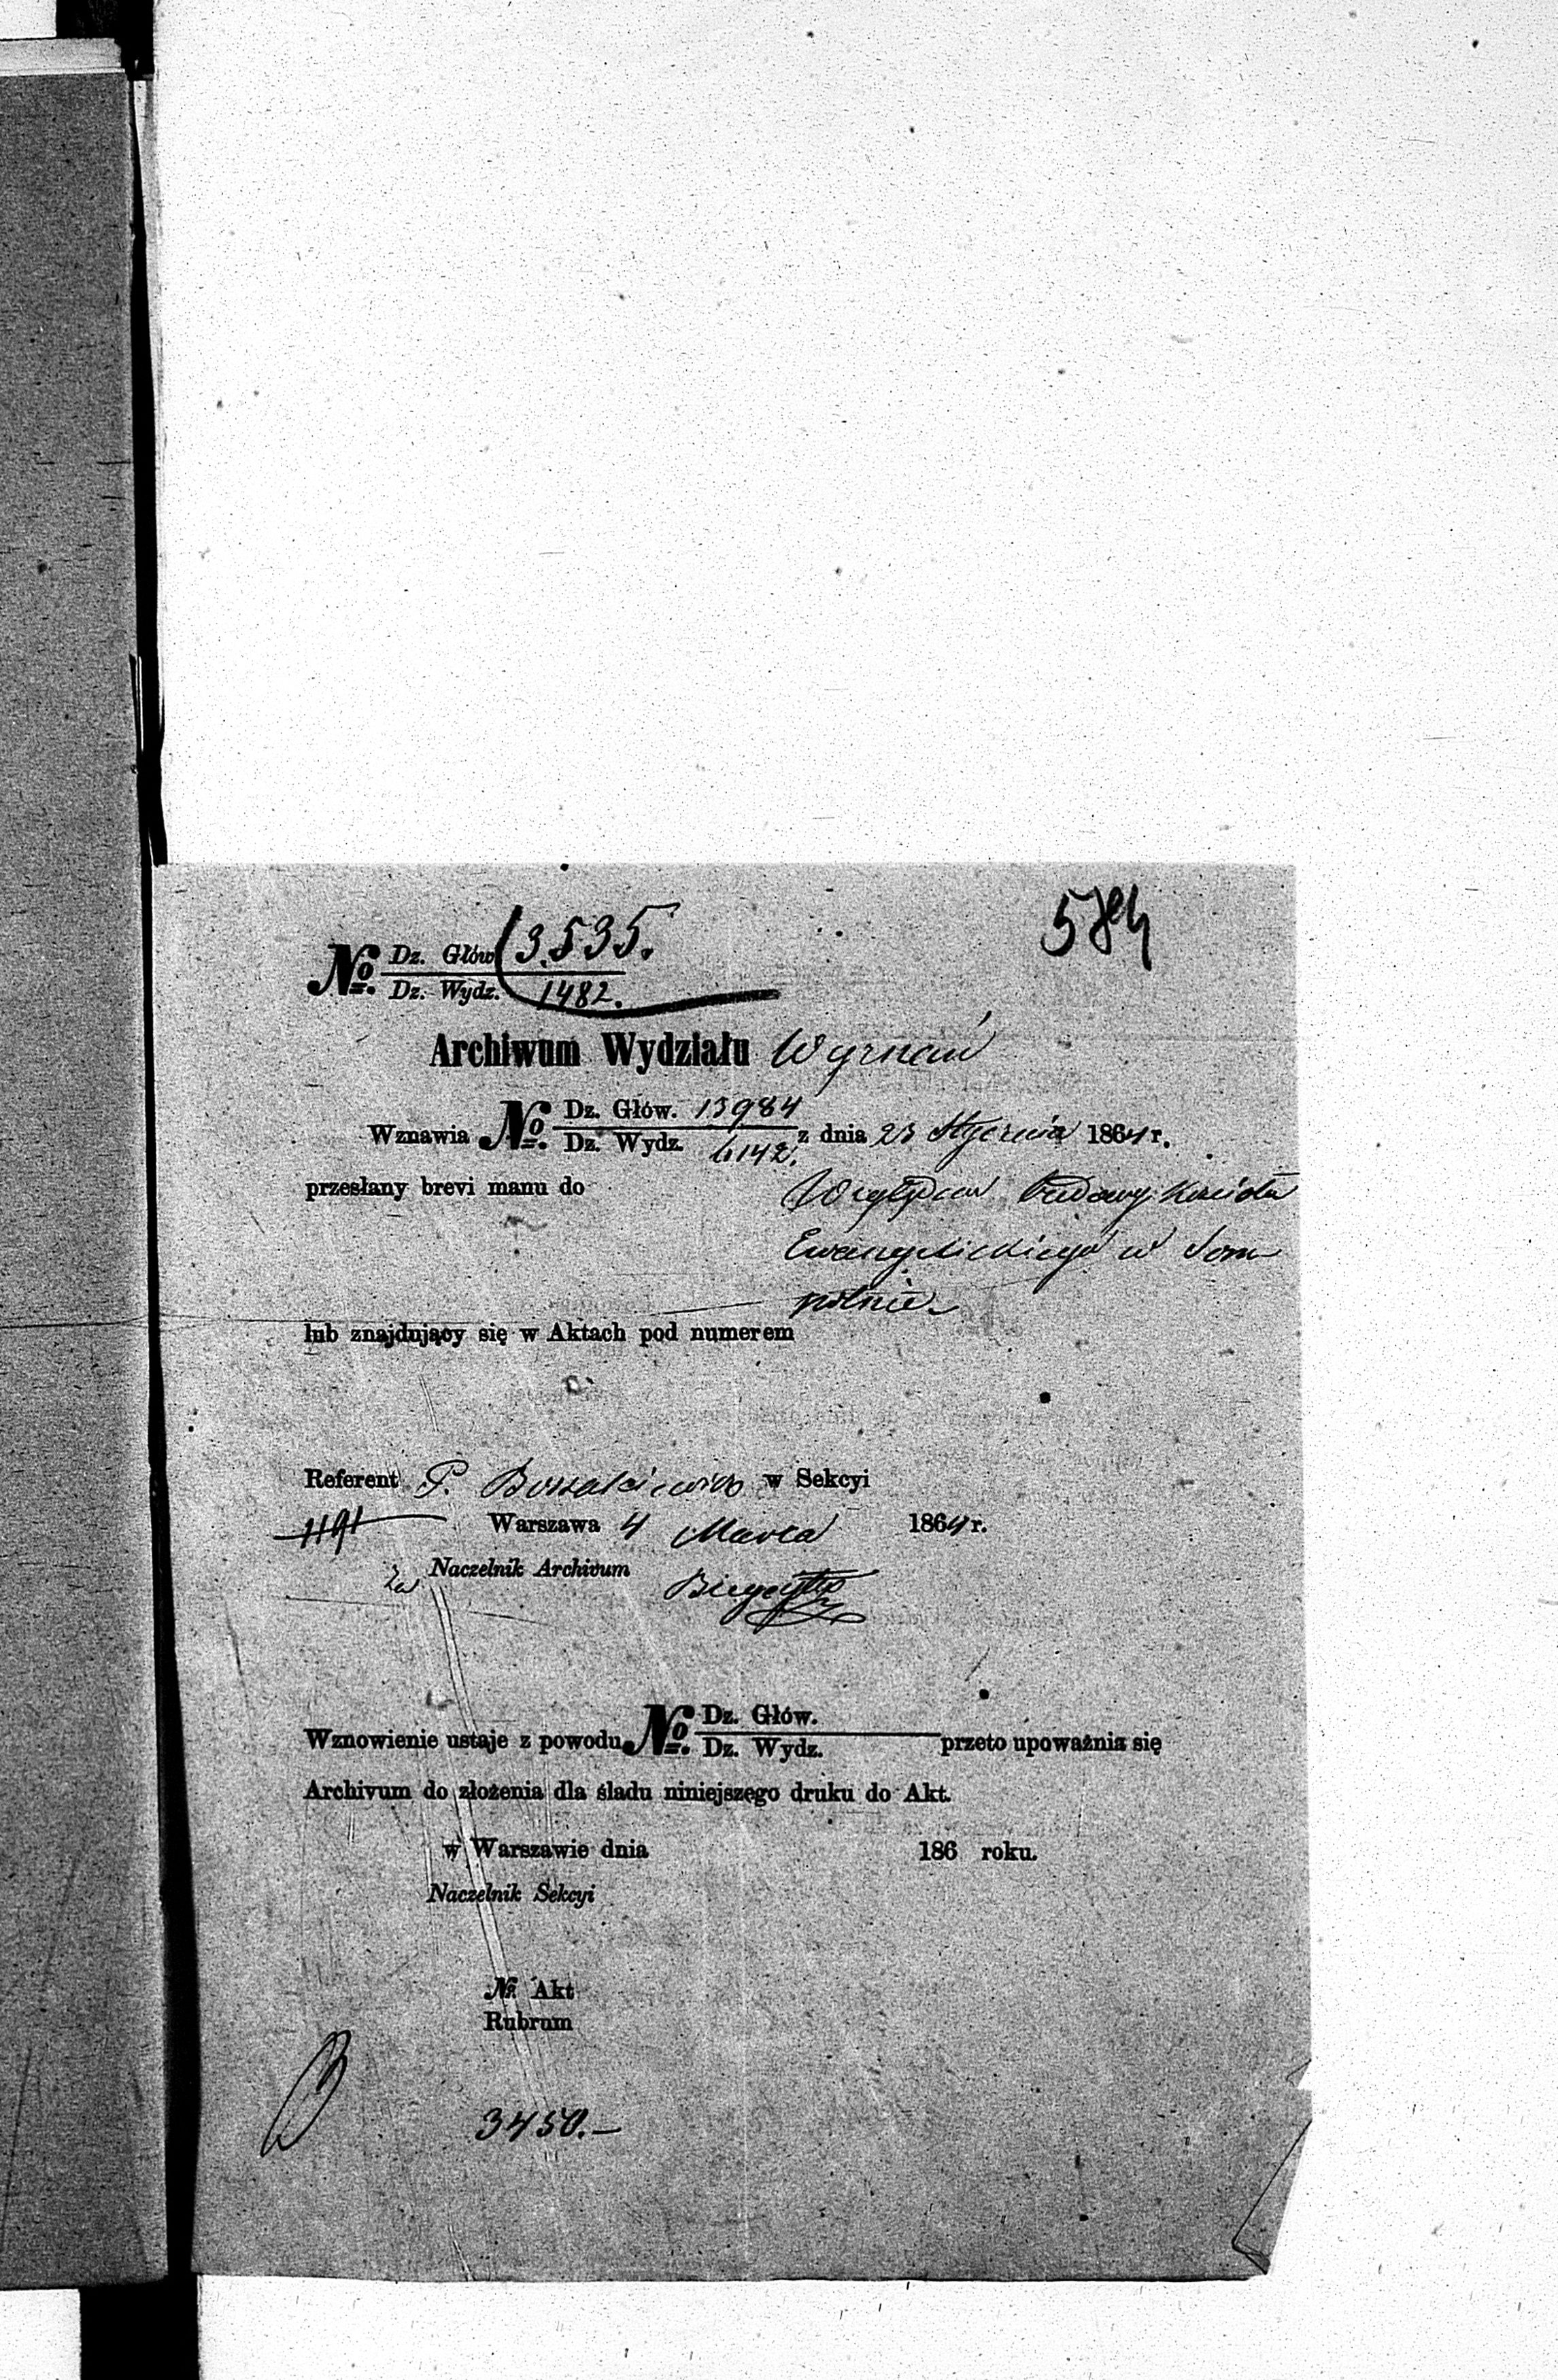 584
№ Dz. Głów 3535.
Dz. Wydz. 1482.
Archiwum Wydziału Wyznań
Wznawia № Dz. Głów. 13984
Dz. Wydz. 6142. z dnia 23 Stycznia 1864 r.
przesłany brevi manu do
Względem budowy Kościoła
Ewangelickiego w Som
polnie
lub znajdujący się w Aktach pod numerem
Referent P. w Sekcyi
Warszawa 4 Marca 1864 r.
za Naczelnik Archivum
Wznowienie ustaje z powodu № Dz. Głów.
Dz. Wydz. przeto upoważnia się
Archivum do złożenia dla śladu niniejszego druku do Akt.
w Warszawie dnia 186 roku.
Naczelnik Sekcyi
№ Akt
Rubrum
3450.-